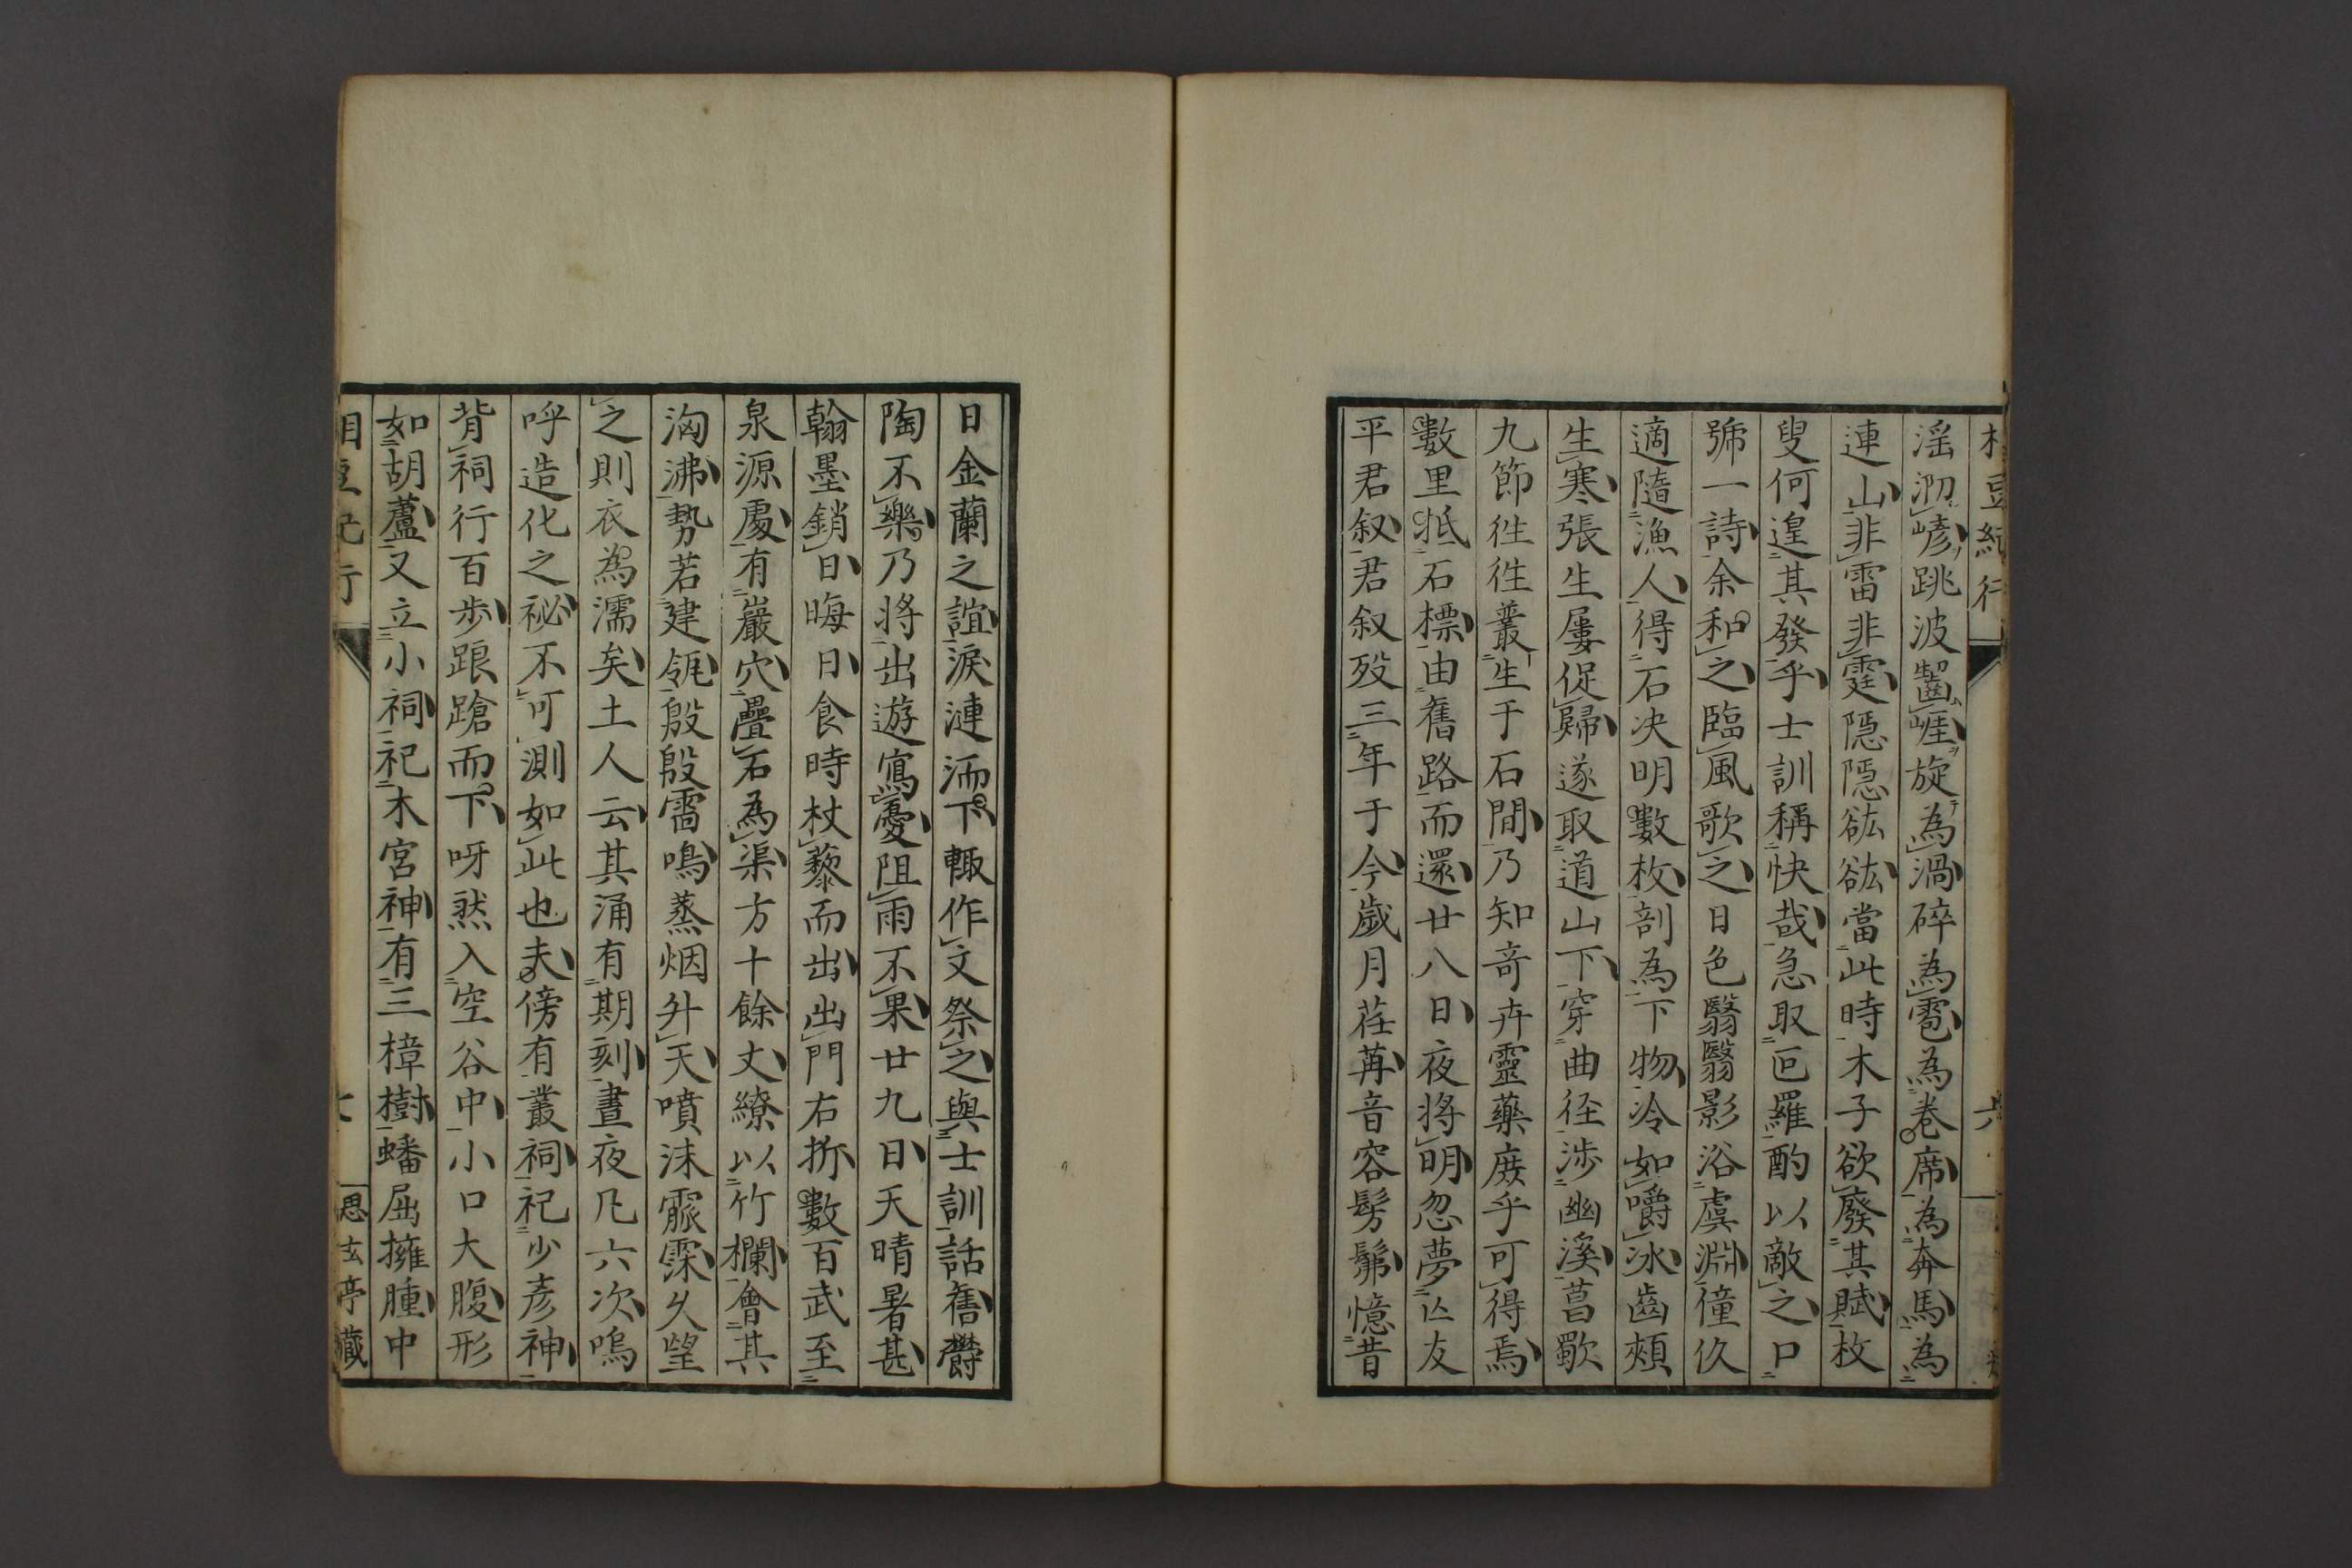 豆紀行
六
滛沏嵃跳波齧崕旋為渦碎為雹為卷席為奔馬為
連山非雷非霆隱隱谹谹當此時木子欲廢其賦枚
叟何遑其發乎士訓稱快哉急取叵羅酌以敵之口
號一詩余和之臨風歌之日色翳翳影浴虞淵僮仗
適隨漁人得石决明數枚剖為下物冷如嚼冰齒頰
生寒張生屢促歸遂取道山下穿曲徑涉幽溪菖歜
九節徃徃叢生于石間乃知奇卉靈藥庶乎可得焉
數里抵石標由舊路而還廿八日夜將明忽夢亡友
平君叙君叙歿三年于今歲月荏苒音容髣髴憶昔
日金蘭之誼淚漣洏下輙作文祭之與士訓話舊欝
陶不樂乃將出遊寫憂阻雨不果廿九日天晴暑甚
翰墨銷日晦日食時杖藜而出出門右折數百武至
泉源處有巖穴疊石為渠方十餘丈繚以竹欄會其
洶沸勢若建瓴殷殷雷鳴蒸烟升天噴沫霢霂久望
之則衣為濡矣土人云其涌有期刻晝夜凡六次嗚
呼造化之祕不可測如此也夫傍有叢祠祀少彥神
背祠行百步踉蹌而下呀然入空谷中小口大腹形
如胡蘆又立小祠祀木宮神有三樟樹蟠屈擁腫中
相豆紀行
七
思玄亭藏